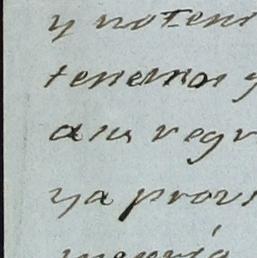 y no ten
tenemos
a su regr
ya prov